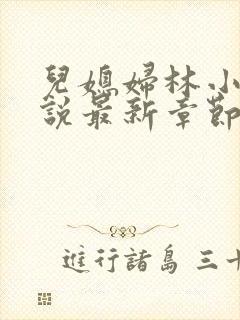 兒媳婦林小
說最新章節
進行諸島 三十